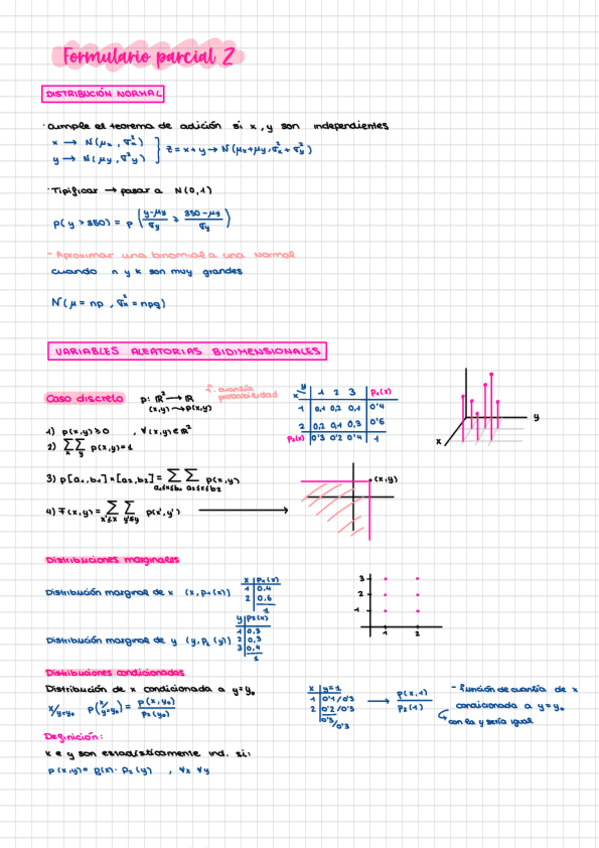 Formulario parcial 2
DISTRIBUCIÓN NORMAL
· cumple el teorema de adición si x, y son independientes
x → N(μx, σ²x)
y → N(μy, σ²y)
} z = x + y → N(μx+μy, σ²x + σ²y)
· Tipificar → pasar a N(0,1)
p(y > 350) = p ( y-μy / σy > 350-μy / σy )
- Aproximar una binomial a una normal
cuando n y k son muy grandes
N(μ = np, σ²x = npq)
VARIABLES ALEATORIAS BIDIMENSIONALES
Caso discreto p: ℝ² → ℝ
(x,y) → p(x,y)
f. cuantía
probabilidad
1) p(x,y) ≥ 0 , ∀(x,y) ∈ ℝ²
2) Σx Σy p(x,y) = 1
x y 1 2 3 P1(x)
1 0,1 0,2 0,1 0'4
2 0,2 0,1 0,3 0'6
P2(x) 0'3 0'2 0'4 1
y
x
3) p[a1,b1]×[a2,b2] = Σ a1≤x≤b1 Σ a2≤x≤b2 p(x,y)
4) F(x,y) = Σ x'≤x Σ y'≤y p(x',y')
(x,y)
Distribuciones marginales
Distribución marginal de x (x, p1(x))
x P1(x)
1 0.4
2 0.6
1
Distribución marginal de y (y, p2(y))
y P2(x)
1 0,3
2 0,3
3 0,4
1
3
2
1
1 2
Distribuciones condicionadas
Distribución de x condicionada a y=y₀
x/y=y₀ p(x/y=y₀) = p(x,y₀) / p2(y₀)
x y=1
1 0'1/0'3
2 0'2/0'3
0'3/0'3
→ p(x,1) / P2(1)
- función de cuantía de x
condicionada a y=y₀
con la y sería igual
Definición:
x e y son estadísticamente ind. si:
p(x,y) = p1(x) · p2(y) , ∀x ∀y